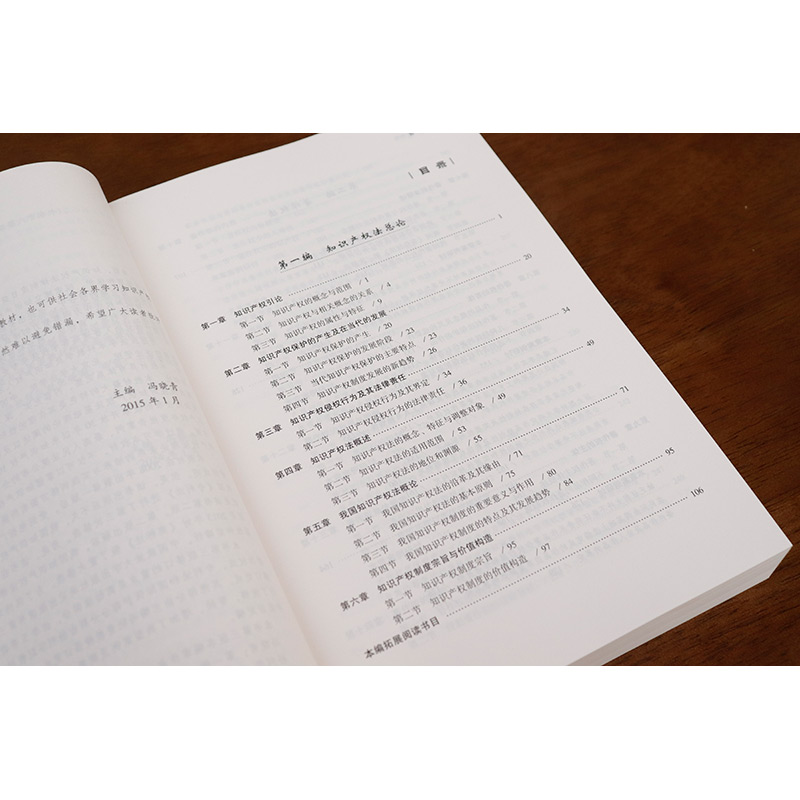 教材，也可供社会各界学习知识产
然难以避免错漏，希望广大读者
主编 冯晓青
2015年1月
目录
第一编 知识产权法总论
1
第一章 知识产权引论 1
第一节 知识产权的概念与范围 / 1
第二节 知识产权与相关概念的关系 / 4
第三节 知识产权的属性与特征 / 9
第二章 知识产权保护的产生及在当代的发展 20
第一节 知识产权保护的产生 / 20
第二节 知识产权保护的发展阶段 / 23
第三节 当代知识产权保护的主要特点 / 23
第四节 知识产权制度发展的新趋势 / 26
第三章 知识产权侵权行为及其法律责任 34
第一节 知识产权侵权行为及其界定 / 34
第二节 知识产权侵权行为的法律责任 / 36
第四章 知识产权法概述 49
第一节 知识产权法的概念、特征与调整对象 / 49
第二节 知识产权法的适用范围 / 53
第三节 知识产权法的地位和渊源 / 55
第五章 我国知识产权法概论 71
第一节 我国知识产权法的沿革及其缘由 / 71
第二节 我国知识产权法的基本原则 / 75
第三节 我国知识产权制度的重要意义与作用 / 80
第四节 我国知识产权制度的特点及其发展趋势 / 84
第六章 知识产权制度宗旨与价值构造 95
第一节 知识产权制度宗旨 / 95
第二节 知识产权制度的价值构造 / 97
本编拓展阅读书目 106